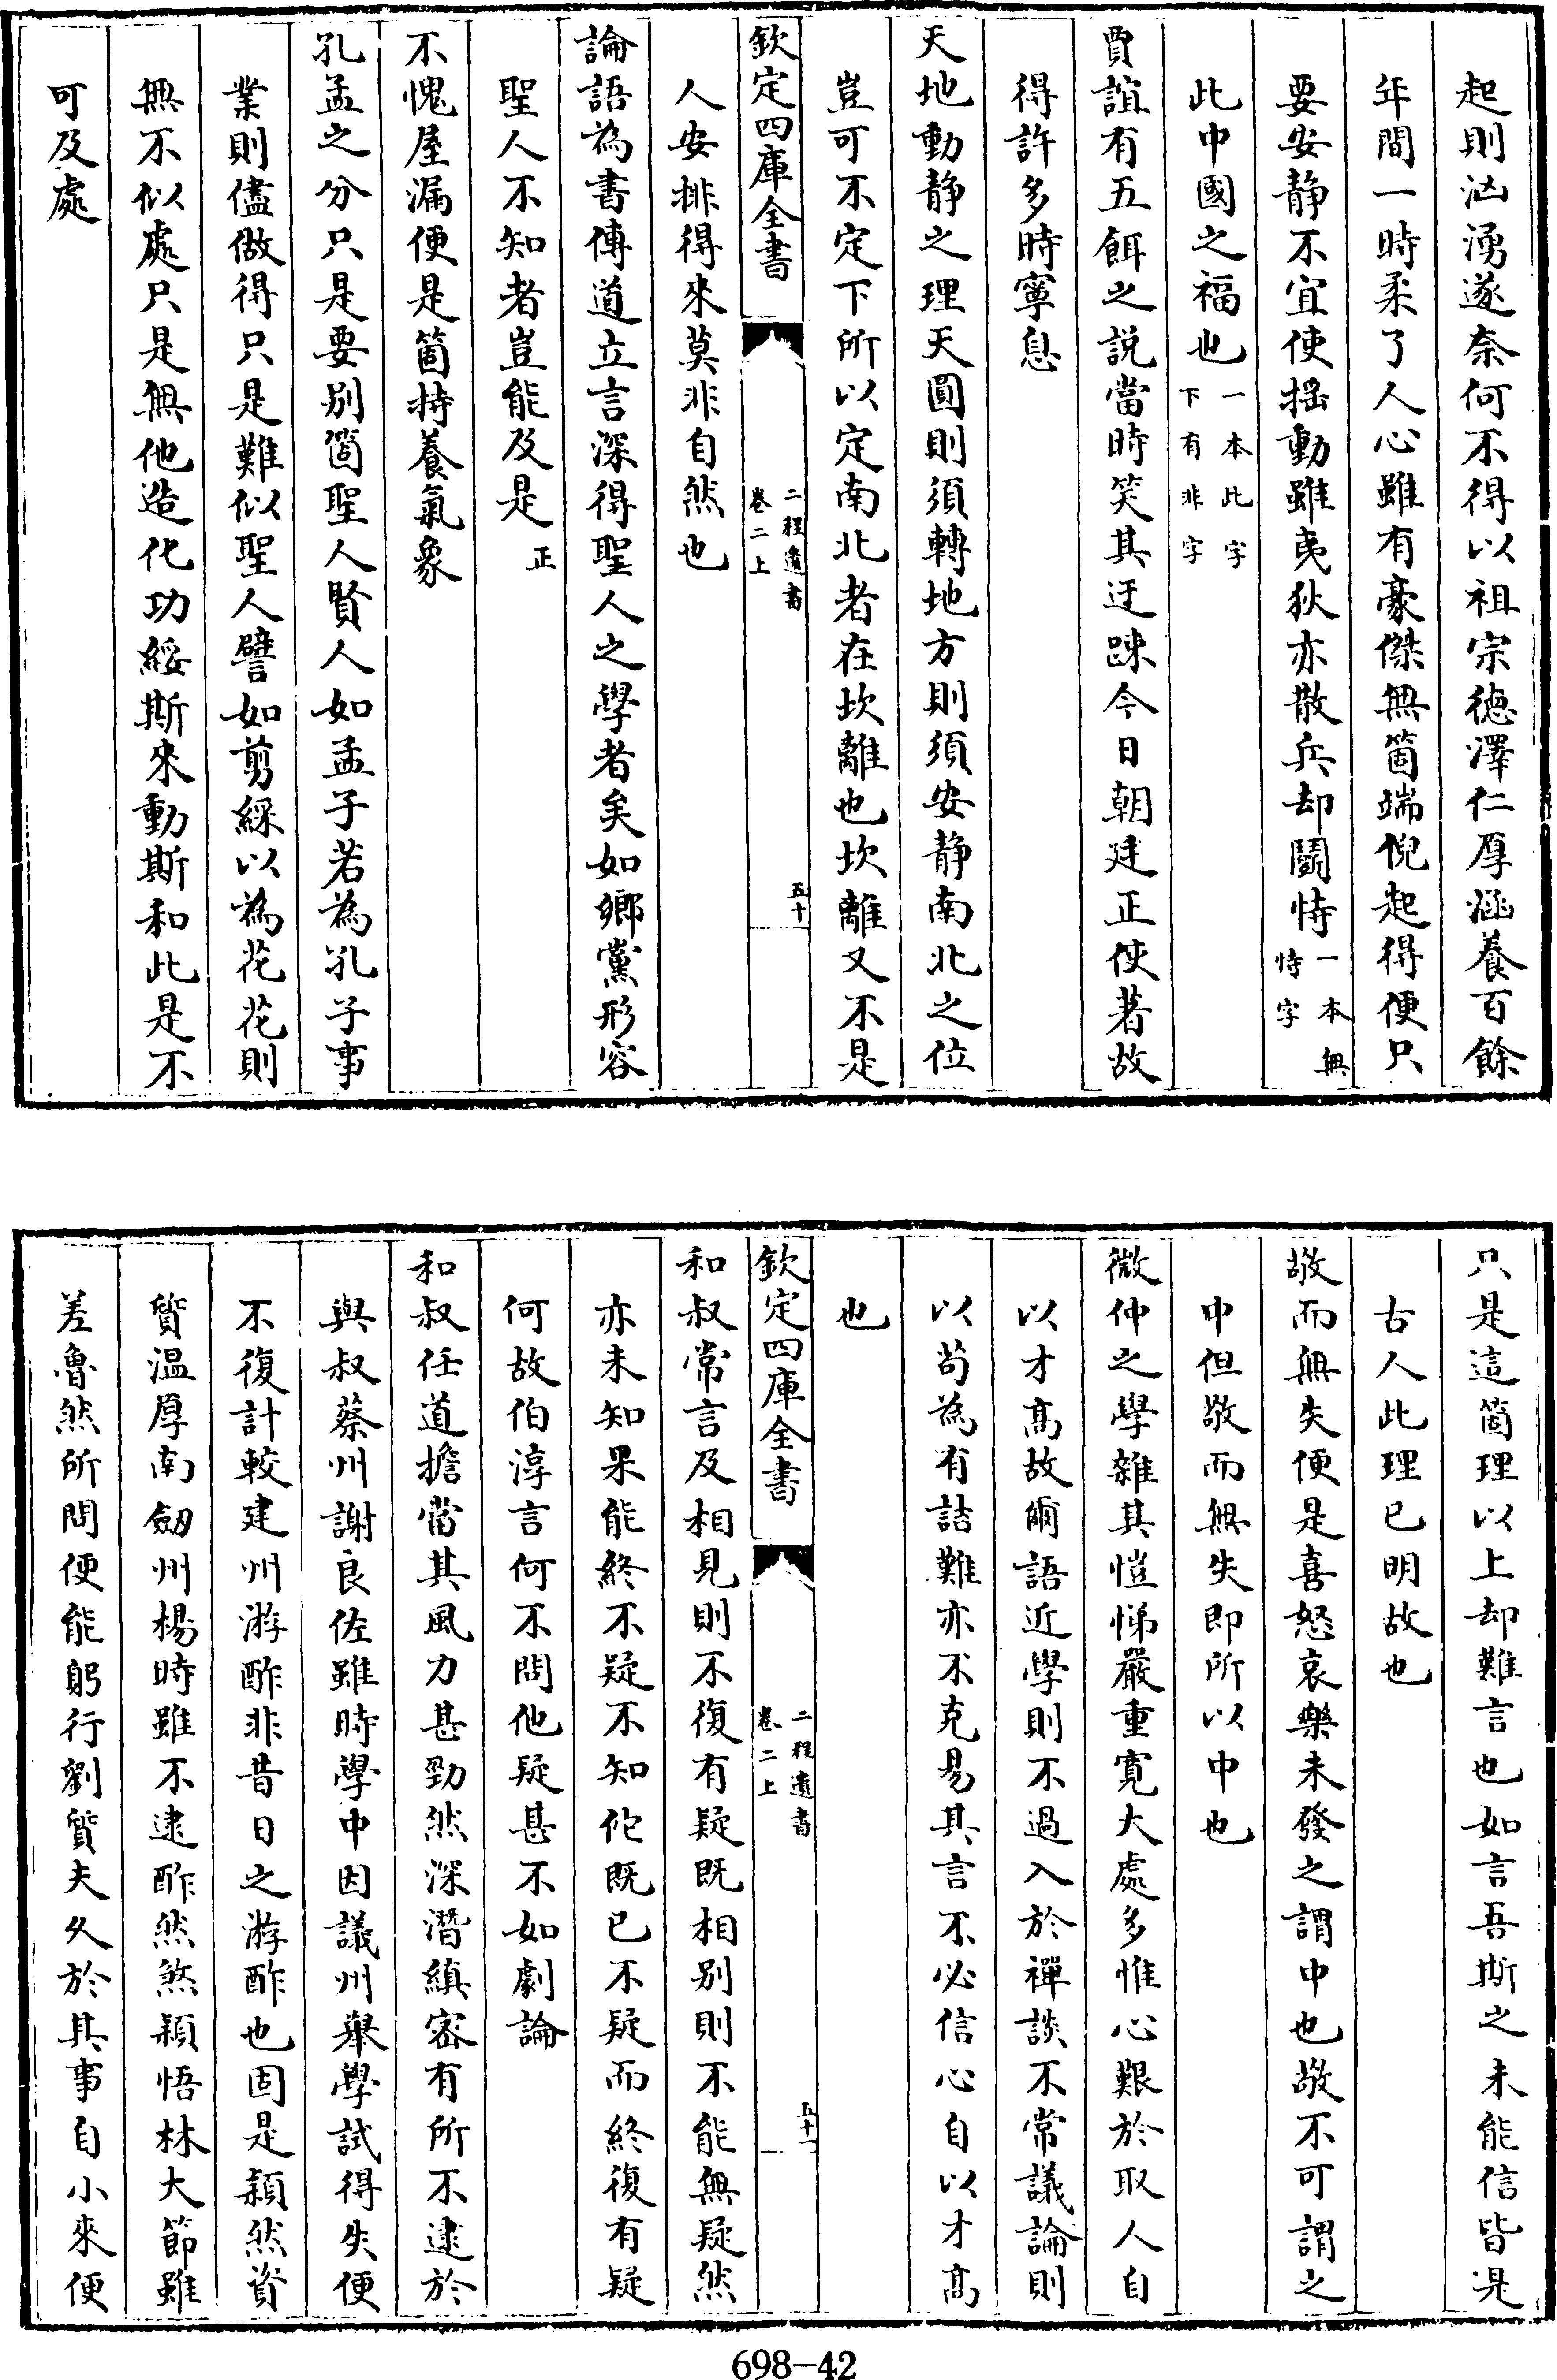 起則汹湧遂奈何不得以祖宗徳澤仁厚涵養百餘
年間一時柔了人心雖有豪傑無箇端倪起得便只
要安静不宜使揺動雖夷狄亦散兵却鬭恃一本無恃字
此中國之福也一本此字下有非字
賈誼有五餌之説當時笑其迂踈今日朝廷正使著故
得許多時寧息
天地動静之理天圓則須轉地方則須安静南北之位
豈可不定下所以定南北者在坎離也坎離又不是
欽定四庫全書
二程遺書
卷二上
五十
人安排得來莫非自然也
論語為書傳道立言深得聖人之學者矣如鄉黨形容
聖人不知者豈能及是正
不愧屋漏便是箇持養氣象
孔孟之分只是要别箇聖人賢人如孟子若為孔子事
業則儘做得只是難似聖人譬如剪綵以為花花則
無不似處只是無他造化功綏斯來動斯和此是不
可及處
只是這箇理以上却難言也如言吾斯之未能信皆是
古人此理已明故也
敬而無失便是喜怒哀樂未發之謂中也敬不可謂之
中但敬而無失即所以中也
微仲之學雜其愷悌嚴重寛大處多惟心艱於取人自
以才髙故爾語近學則不過入於禪談不常議論則
以苟為有詰難亦不克易其言不必信心自以才髙
也
欽定四庫全書
二程遺書
卷二上
五十一
和叔常言及相見則不復有疑既相别則不能無疑然
亦未知果能終不疑不知佗既已不疑而終復有疑
何故伯淳言何不問他疑甚不如劇論
和叔任道擔當其風力甚勁然深潛縝密有所不逮於
與叔蔡州謝良佐雖時學中因議州舉學試得失便
不復計較建州游酢非昔日之游酢也固是穎然資
質溫厚南劒州楊時雖不逮酢然煞穎悟林大節雖
差魯然所問便能躬行劉質夫久於其事自小來便
698-42